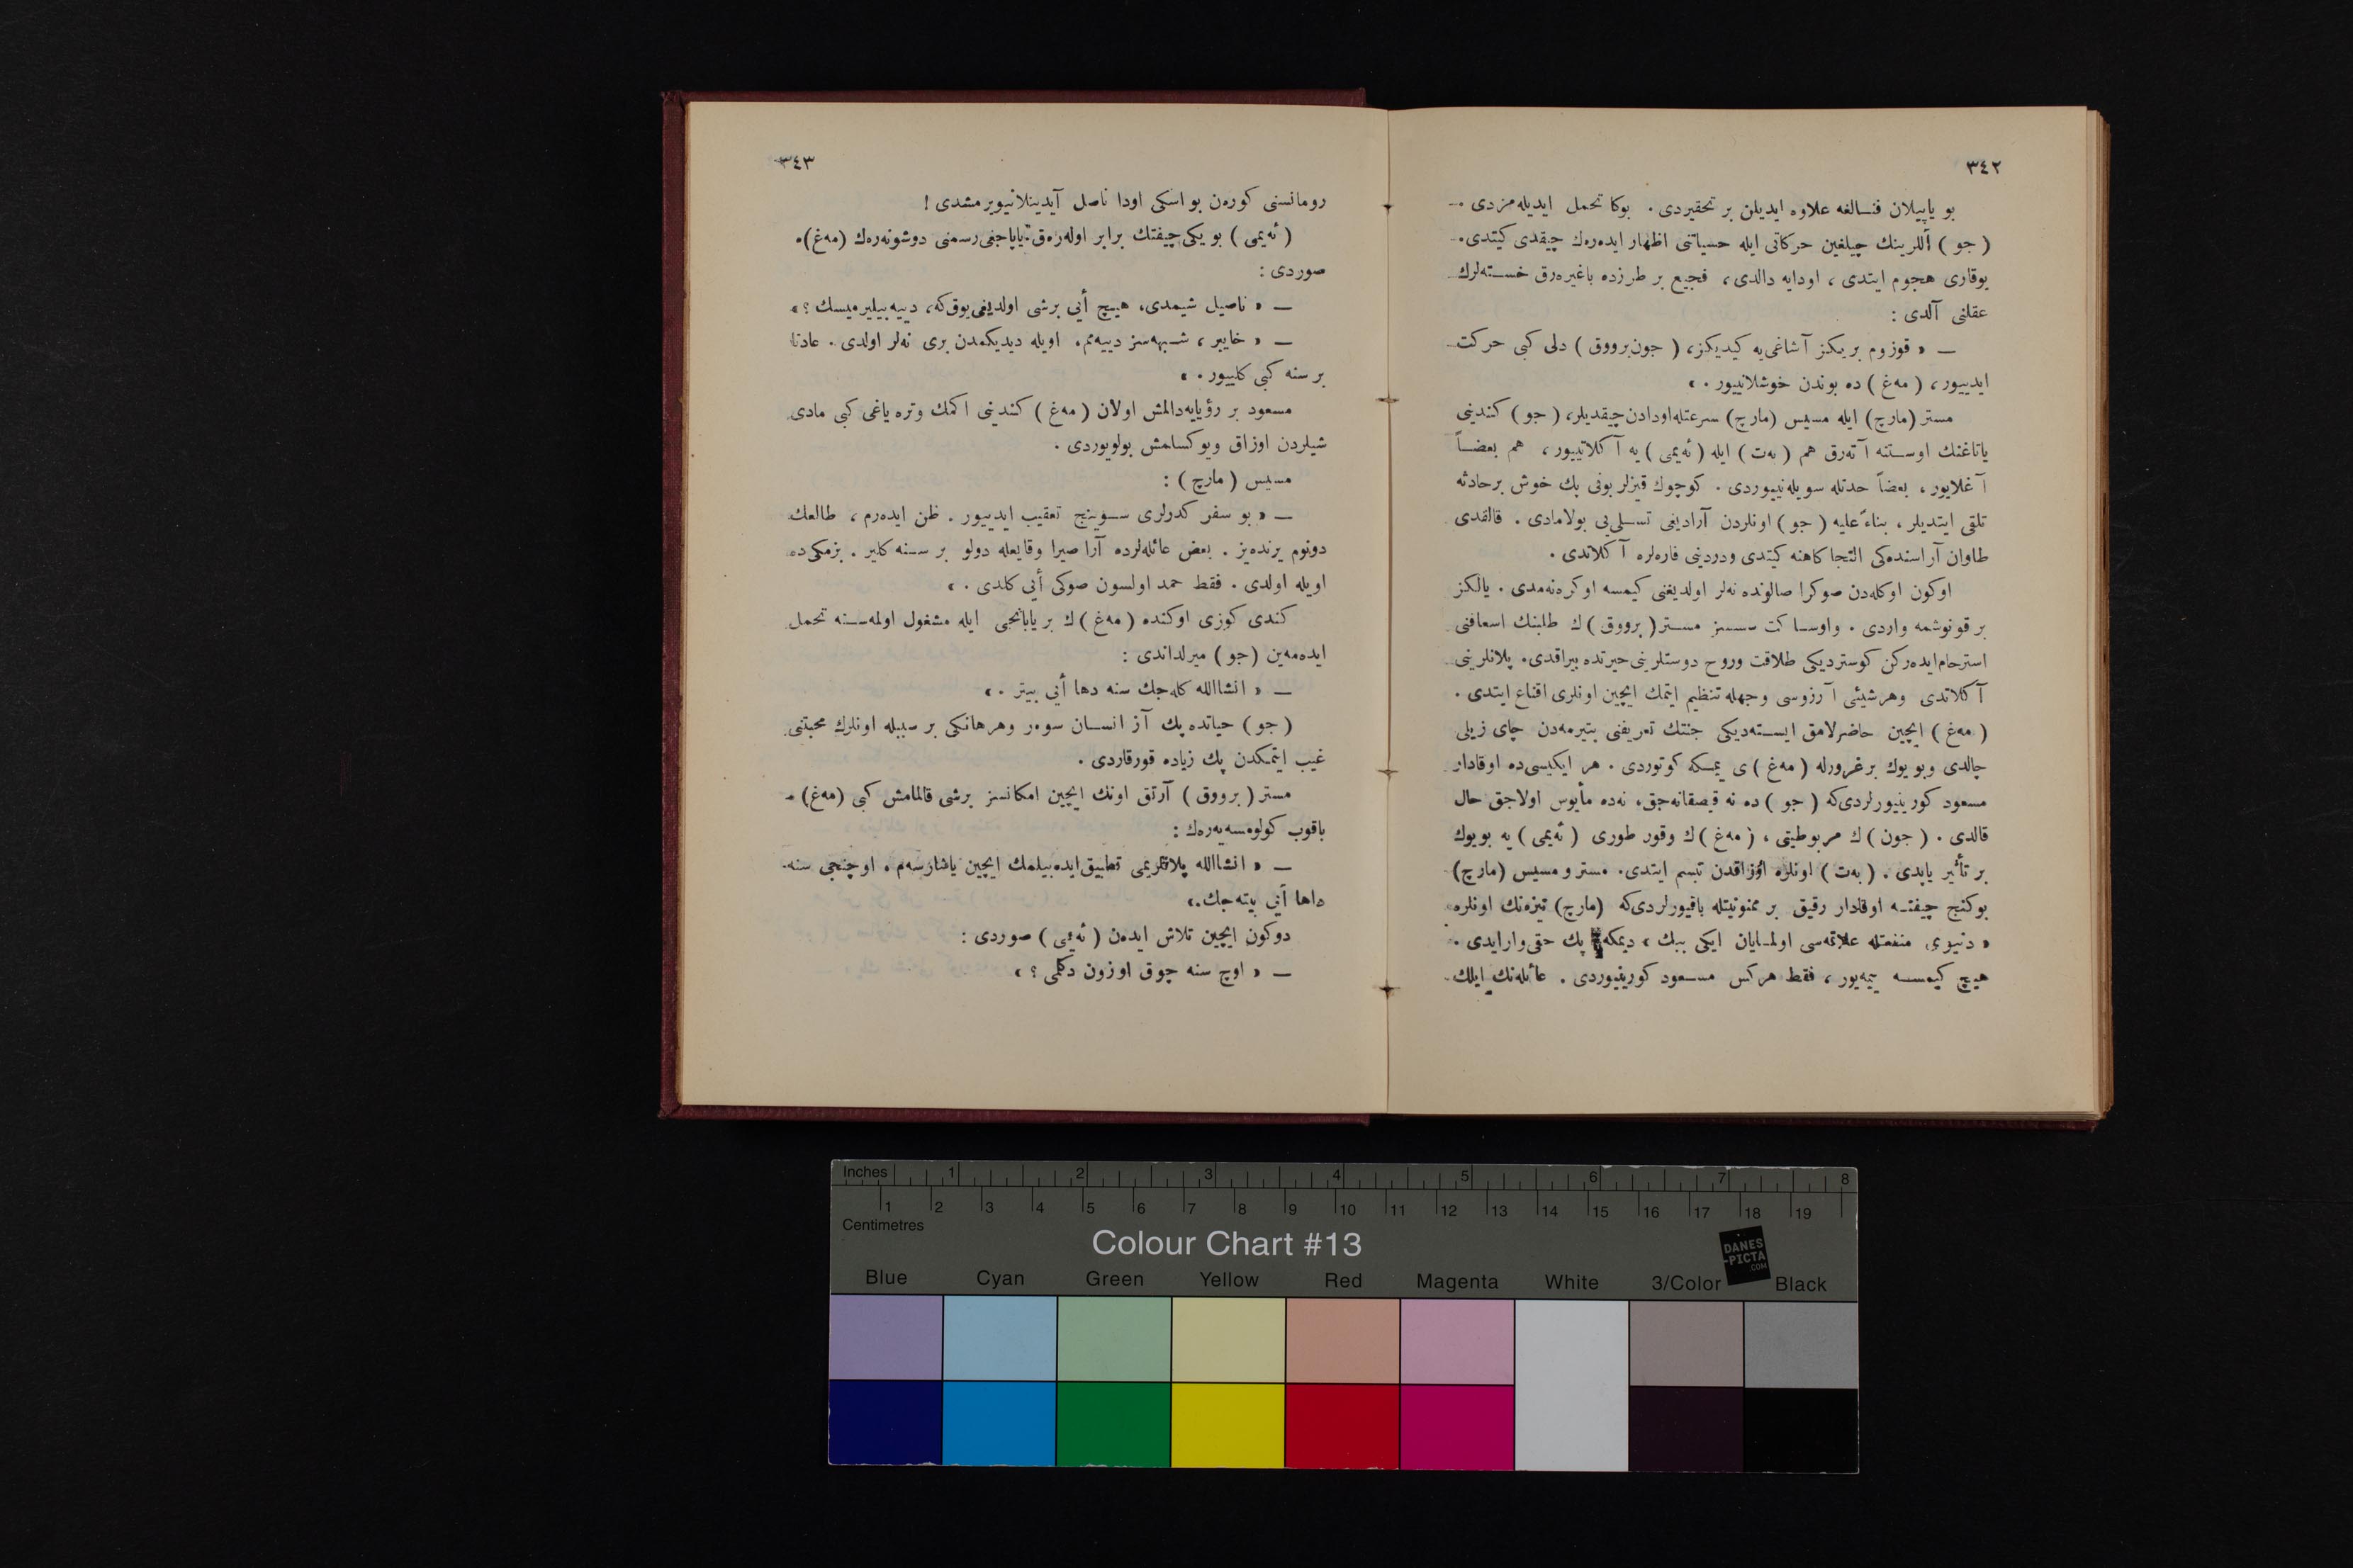 ٣٤٢
بو ياپيلان فنالغه علاوه ايديلن بر تحقيردى. بوكا تحمل ايديله‌مزدى.
(جو) أللرينك چيلغين حركاتى ايله حسياتنى اظهار ايده‌رك چيقدى كيتدى.
يوقارى هجوم ايتدى، اودايه دالدى، فجيع بر طرزده باغيره‌رق خسته‌لرك
عقلنى آلدى:
— « قوزوم بريكز آشاغى‌يه كيديكز، (جون برووق) دلى كبى حركت
ايدييور، (مه‌غ) ده بوندن خوشلانييور. »
مستر (مارچ) ايله مسيس (مارچ) سرعتله اودادن چيقديلر، (جو) كندينى
ياتاغنك اوستنه آته‌رق هم (به‌ت) ايله (ئه‌يمى) يه آكلاتييور، هم بعضاً
آغلايور، بعضاً حدتله سويله‌نييوردى. كوچوك قيزلر بونى پك خوش برحادثه
تلقى ايتديلر، بناءً عليه (جو) اونلردن آراديغى تسلى‌يى بولامادى. قالقدى
طاوان آراسنده‌كى التجا كاهنه كيتدى ودردينى فاره‌لره آكلاتدى.
اوكون اوكله‌دن صوكرا صالونده نه‌لر اولديغنى كيمسه اوكره‌نه‌مدى. يالكز
بر قونوشمه واردى. واوسا كت سسسز مستر (برووق) ك طلبنك اسعافنى
استرحام ايده‌ركن كوسترديكى طلاقت وروح دوستلرينى حيرتده بيراقدى. پلانلرينى
آكلاتدى وهرشيئى آرزوسى وجهله تنظيم ايتمك ايچين اونلرى اقناع ايتدى.
(مه‌غ) ايچين حاضرلامق ايسته‌ديكى جنتك تعريفنى بيتيرمه‌دن چاى زيلى
چالدى وبويوك برغرورله (مه‌غ) ى يمكه كوتوردى. هر ايكيسى‌ده اوقادار
مسعود كورينيورلردى‌كه (جو) ده نه قيصقانه‌جق، نه‌ده مأيوس اولاجق حال
قالدى. (جون) ك مربوطيتى، (مه‌غ) ك وقور طورى (ئه‌يمى) يه بويوك
بر تأثير ياپدى. (به‌ت) اونلره اوزاقدن تبسم ايتدى. مستر و مسيس (مارچ)
بوكنج چيفته اوقادار رقيق بر ممنونيتله باقيورلردى‌كه (مارچ) تيزه‌نك اونلره
« دنيوى منفعتله علاقه‌سى اولمايان ايكى ببك » ديمكه پك حقى وارايدى.
هيچ كيمسه ييه‌يور، فقط هركس مسعود كورينيوردى. عائله‌نك ايلك
٣٤٣
رومانسنى كوره‌ن بو اسكى اودا ناصل آيدينلانيويرمشدى!
(ئه‌يمى) بو يكى چيفتك برابر اوله‌رق ياپاجغى رسمنى دوشونه‌رك (مه‌غ).
صوردى:
— « ناصيل شيمدى، هيچ أيى برشى اولديغى يوق‌كه، دييه بيليرميسك؟ »
— « خايير، شبهه‌سز دييه‌مم. اويله ديديكمدن برى نه‌لر اولدى. عادتا
بر سنه كبى كلييور. »
مسعود بر رؤيايه دالمش اولان (مه‌غ) كندينى اكمك وتره ياغى كبى مادى
شيلردن اوزاق ويوكسلمش بولويوردى.
مسيس (مارچ):
— « بو سفر كدرلرى سوينج تعقيب ايدييور. ظن ايده‌رم، طالعك
دونوم يرنده‌يز. بعض عائله‌لرده آرا صيرا وقايعله دولو بر سنه كلير. بزمكى ده
اويله اولدى. فقط حمد اولسون صوكى أيى كلدى. »
كندى كوزى اوكنده (مه‌غ) ك بر يابانجى ايله مشغول اولمه‌سنه تحمل
ايده‌مه‌ين (جو) ميرلداندى:
— « انشاالله كله‌جك سنه دها أيى بيتر. »
(جو) حياتده پك آز انسان سوه‌ر وهر هانكى بر سببله اونلرك محبتنى
غيب ايتمكدن پك زياده قورقاردى.
مستر (برووق) آرتق اونك ايچين امكانسز برشى قالمامش كبى (مه‌غ)
باقوب كولومسه‌يه‌رك:
— « انشاالله پلانلريمى تطبيق ايده بيلمك ايچين ياشارسه‌م. اوچنجى سنه
داها أيى بيته‌جك. »
دوكون ايچين تلاش ايده‌ن (ئه‌يمى) صوردى:
— « اوچ سنه چوق اوزون دكلمى؟ »
Inches 1 2 3 4 5 6 7 8
1 2 3 4 5 6 7 8 9 10 11 12 13 14 15 16 17 18 19
Centimetres
Colour Chart #13
DANES
-PICTA
.COM
Blue Cyan Green Yellow Red Magenta White 3/Color Black